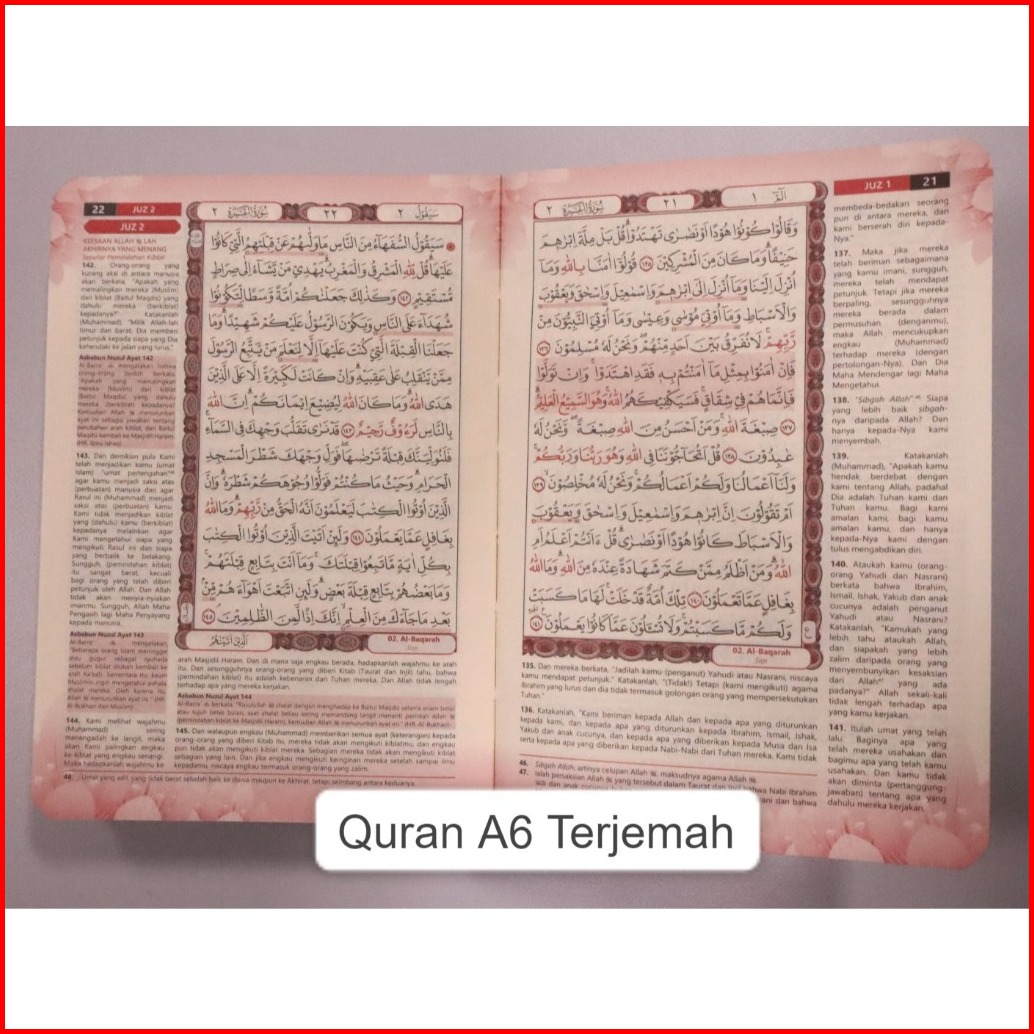 JUZ 1 21
الٓمّٓ ١
٢١
سُوْرَةُ الْبَقَرَة ٢
وَقَالُوْا كُوْنُوْا هُوْدًا اَوْ نَصٰرٰى تَهْتَدُوْا ۗ قُلْ بَلْ مِلَّةَ اِبْرٰهٖمَ
حَنِيْفًا ۗ وَمَا كَانَ مِنَ الْمُشْرِكِيْنَ ١٣٥ قُوْلُوْٓا اٰمَنَّا بِاللّٰهِ وَمَآ
اُنْزِلَ اِلَيْنَا وَمَآ اُنْزِلَ اِلٰٓى اِبْرٰهٖمَ وَاِسْمٰعِيْلَ وَاِسْحٰقَ وَيَعْقُوْبَ
وَالْاَسْبَاطِ وَمَآ اُوْتِيَ مُوْسٰى وَعِيْسٰى وَمَآ اُوْتِيَ النَّبِيُّوْنَ مِنْ
رَّبِّهِمْ لَا نُفَرِّقُ بَيْنَ اَحَدٍ مِّنْهُمْ وَنَحْنُ لَهٗ مُسْلِمُوْنَ ١٣٦
فَاِنْ اٰمَنُوْا بِمِثْلِ مَآ اٰمَنْتُمْ بِهٖ فَقَدِ اهْتَدَوْا وَاِنْ تَوَلَّوْا
فَاِنَّمَا هُمْ فِيْ شِقَاقٍ فَسَيَكْفِيْكَهُمُ اللّٰهُ وَهُوَ السَّمِيْعُ الْعَلِيْمُ
١٣٧ صِبْغَةَ اللّٰهِ وَمَنْ اَحْسَنُ مِنَ اللّٰهِ صِبْغَةً وَّنَحْنُ لَهٗ
عٰبِدُوْنَ ١٣٨ قُلْ اَتُحَاۤجُّوْنَنَا فِى اللّٰهِ وَهُوَ رَبُّنَا وَرَبُّكُمْ
وَلَنَآ اَعْمَالُنَا وَلَكُمْ اَعْمَالُكُمْ وَنَحْنُ لَهٗ مُخْلِصُوْنَ ١٣٩
اَمْ تَقُوْلُوْنَ اِنَّ اِبْرٰهٖمَ وَاِسْمٰعِيْلَ وَاِسْحٰقَ وَيَعْقُوْبَ
وَالْاَسْبَاطَ كَانُوْا هُوْدًا اَوْ نَصٰرٰى قُلْ ءَاَنْتُمْ اَعْلَمُ اَمِ
اللّٰهُ وَمَنْ اَظْلَمُ مِمَّنْ كَتَمَ شَهَادَةً عِنْدَهٗ مِنَ اللّٰهِ وَمَا اللّٰهُ
بِغَافِلٍ عَمَّا تَعْمَلُوْنَ ١٤٠ تِلْكَ اُمَّةٌ قَدْ خَلَتْ لَهَا مَا كَسَبَتْ
وَلَكُمْ مَّا كَسَبْتُمْ وَلَا تُسْـَٔلُوْنَ عَمَّا كَانُوْا يَعْمَلُوْنَ ١٤١
02. Al-Baqarah
Sapi
135. Dan mereka berkata, "Jadilah kamu (penganut) Yahudi atau Nasrani, niscaya
kamu mendapat petunjuk." Katakanlah, "(Tidak!) Tetapi (kami mengikuti) agama
Ibrahim yang lurus dan dia tidak termasuk golongan orang yang mempersekutukan
Tuhan."
136. Katakanlah, "Kami beriman kepada Allah dan kepada apa yang diturunkan
kepada kami, dan kepada apa yang diturunkan kepada Ibrahim, Ismail, Ishak,
Yakub dan anak cucunya, dan kepada apa yang diberikan kepada Musa dan Isa
serta kepada apa yang diberikan kepada Nabi-Nabi dari Tuhan mereka. Kami tidak
membeda-bedakan seorang
pun di antara mereka, dan
kami berserah diri kepada-
Nya."
137. Maka jika mereka
telah beriman sebagaimana
yang kamu imani, sungguh,
mereka telah mendapat
petunjuk. Tetapi jika mereka
berpaling, sesungguhnya
mereka berada dalam
permusuhan (denganmu),
maka Allah mencukupkan
engkau (Muhammad)
terhadap mereka (dengan
pertolongan-Nya). Dan Dia
Maha Mendengar lagi Maha
Mengetahui.
138. "Sibgah Allah" 46 Siapa
yang lebih baik sibgah-
nya daripada Allah? Dan
hanya kepada-Nya kami
menyembah.
139. Katakanlah
(Muhammad), "Apakah kamu
hendak berdebat dengan
kami tentang Allah, padahal
Dia adalah Tuhan kami dan
Tuhan kamu. Bagi kami
amalan kami, bagi kamu
amalan kamu, dan hanya
kepada-Nya kami dengan
tulus mengabdikan diri.
140. Ataukah kamu (orang-
orang Yahudi dan Nasrani)
berkata bahwa Ibrahim,
Ismail, Ishak, Yakub dan anak
cucunya adalah penganut
Yahudi atau Nasrani?
Katakanlah, "Kamukah yang
lebih tahu ataukah Allah,
dan siapakah yang lebih
zalim daripada orang yang
menyembunyikan kesaksian
dari Allah" yang ada
padanya?" Allah sekali-kali
tidak lengah terhadap apa
yang kamu kerjakan.
141. Itulah umat yang telah
lalu. Baginya apa yang
telah mereka usahakan dan
bagimu apa yang telah kamu
usahakan. Dan kamu tidak
akan diminta (pertanggung-
jawaban) tentang apa yang
dahulu mereka kerjakan.
46. Sibgah Allah, artinya celupan Allah ﷻ, maksudnya agama Allah ﷻ.
47. Ialah persaksian Allah ﷻ yang tersebut dalam Taurat dan Injil bahwa Nabi Ibrahim
22 JUZ 2
JUZ 2
سَيَقُوْلُ ٢
٢٢
سُوْرَةُ الْبَقَرَة ٢
سَيَقُوْلُ السُّفَهَاۤءُ مِنَ النَّاسِ مَا وَلّٰىهُمْ عَنْ قِبْلَتِهِمُ الَّتِيْ كَانُوْا
عَلَيْهَا قُلْ لِّلّٰهِ الْمَشْرِقُ وَالْمَغْرِبُ يَهْدِيْ مَنْ يَّشَاۤءُ اِلٰى صِرَاطٍ
مُّسْتَقِيْمٍ ١٤٢ وَكَذٰلِكَ جَعَلْنٰكُمْ اُمَّةً وَّسَطًا لِّتَكُوْنُوْا
شُهَدَاۤءَ عَلَى النَّاسِ وَيَكُوْنَ الرَّسُوْلُ عَلَيْكُمْ شَهِيْدًا وَمَا
جَعَلْنَا الْقِبْلَةَ الَّتِيْ كُنْتَ عَلَيْهَآ اِلَّا لِنَعْلَمَ مَنْ يَّتَّبِعُ الرَّسُوْلَ
مِمَّنْ يَّنْقَلِبُ عَلٰى عَقِبَيْهِ وَاِنْ كَانَتْ لَكَبِيْرَةً اِلَّا عَلَى الَّذِيْنَ
هَدَى اللّٰهُ وَمَا كَانَ اللّٰهُ لِيُضِيْعَ اِيْمَانَكُمْ اِنَّ اللّٰهَ
بِالنَّاسِ لَرَءُوْفٌ رَّحِيْمٌ ١٤٣ قَدْ نَرٰى تَقَلُّبَ وَجْهِكَ فِى السَّمَاۤءِ
فَلَنُوَلِّيَنَّكَ قِبْلَةً تَرْضٰىهَا فَوَلِّ وَجْهَكَ شَطْرَ الْمَسْجِدِ
الْحَرَامِ وَحَيْثُ مَا كُنْتُمْ فَوَلُّوْا وُجُوْهَكُمْ شَطْرَهٗ وَاِنَّ
الَّذِيْنَ اُوْتُوا الْكِتٰبَ لَيَعْلَمُوْنَ اَنَّهُ الْحَقُّ مِنْ رَّبِّهِمْ وَمَا اللّٰهُ
بِغَافِلٍ عَمَّا يَعْمَلُوْنَ ١٤٤ وَلَىِٕنْ اَتَيْتَ الَّذِيْنَ اُوْتُوا الْكِتٰبَ
بِكُلِّ اٰيَةٍ مَّا تَبِعُوْا قِبْلَتَكَ وَمَآ اَنْتَ بِتَابِعٍ قِبْلَتَهُمْ
وَمَا بَعْضُهُمْ بِتَابِعٍ قِبْلَةَ بَعْضٍ وَلَىِٕنِ اتَّبَعْتَ اَهْوَاۤءَهُمْ مِّنْ
بَعْدِ مَا جَاۤءَكَ مِنَ الْعِلْمِ اِنَّكَ اِذًا لَّمِنَ الظّٰلِمِيْنَ ١٤٥
02. Al-Baqarah
Sapi
142. Orang-orang yang
kurang akal di antara manusia
akan berkata, "Apakah yang
memalingkan mereka (Muslim)
dari kiblat (Baitul Maqdis) yang
dahulu mereka (berkiblat)
kepadanya?" Katakanlah
(Muhammad), "Milik Allah-lah
timur dan barat; Dia memberi
petunjuk kepada siapa yang Dia
kehendaki ke jalan yang lurus."
Asbabun Nuzul Ayat 142
143. Dan demikian pula Kami
telah menjadikan kamu (umat
Islam) "umat pertengahan"
agar kamu menjadi saksi atas
(perbuatan) manusia dan agar
Rasul ini (Muhammad) menjadi
saksi atas (perbuatan) kamu.
Kami tidak menjadikan kiblat
yang (dahulu) kamu (berkiblat)
kepadanya melainkan agar
Kami mengetahui siapa yang
mengikuti Rasul ini dan siapa
yang berbalik ke belakang.
Sungguh, (pemindahan kiblat)
itu sangat berat, kecuali
bagi orang yang telah diberi
petunjuk oleh Allah. Dan Allah
tidak akan menyia-nyiakan
imanmu. Sungguh, Allah Maha
Pengasih lagi Maha Penyayang
kepada manusia.
Asbabun Nuzul Ayat 143
144. Kami melihat wajahmu
(Muhammad) sering
menengadah ke langit, maka
akan Kami palingkan engkau
ke kiblat yang engkau senangi.
Maka hadapkanlah wajahmu ke
arah Masjidil Haram. Dan di mana saja engkau berada, hadapkanlah wajahmu ke arah
itu. Dan sesungguhnya orang-orang yang diberi Kitab (Taurat dan Injil) tahu, bahwa
(pemindahan kiblat) itu adalah kebenaran dari Tuhan mereka. Dan Allah tidak lengah
terhadap apa yang mereka kerjakan.
Asbabun Nuzul Ayat 144
145. Dan walaupun engkau (Muhammad) memberikan semua ayat (keterangan) kepada
orang-orang yang diberi Kitab itu, mereka tidak akan mengikuti kiblatmu, dan engkau
pun tidak akan mengikuti kiblat mereka. Sebagian mereka tidak akan mengikuti kiblat
sebagian yang lain. Dan jika engkau mengikuti keinginan mereka setelah sampai ilmu
kepadamu, niscaya engkau termasuk orang-orang yang zalim.
Quran A6 Terjemah